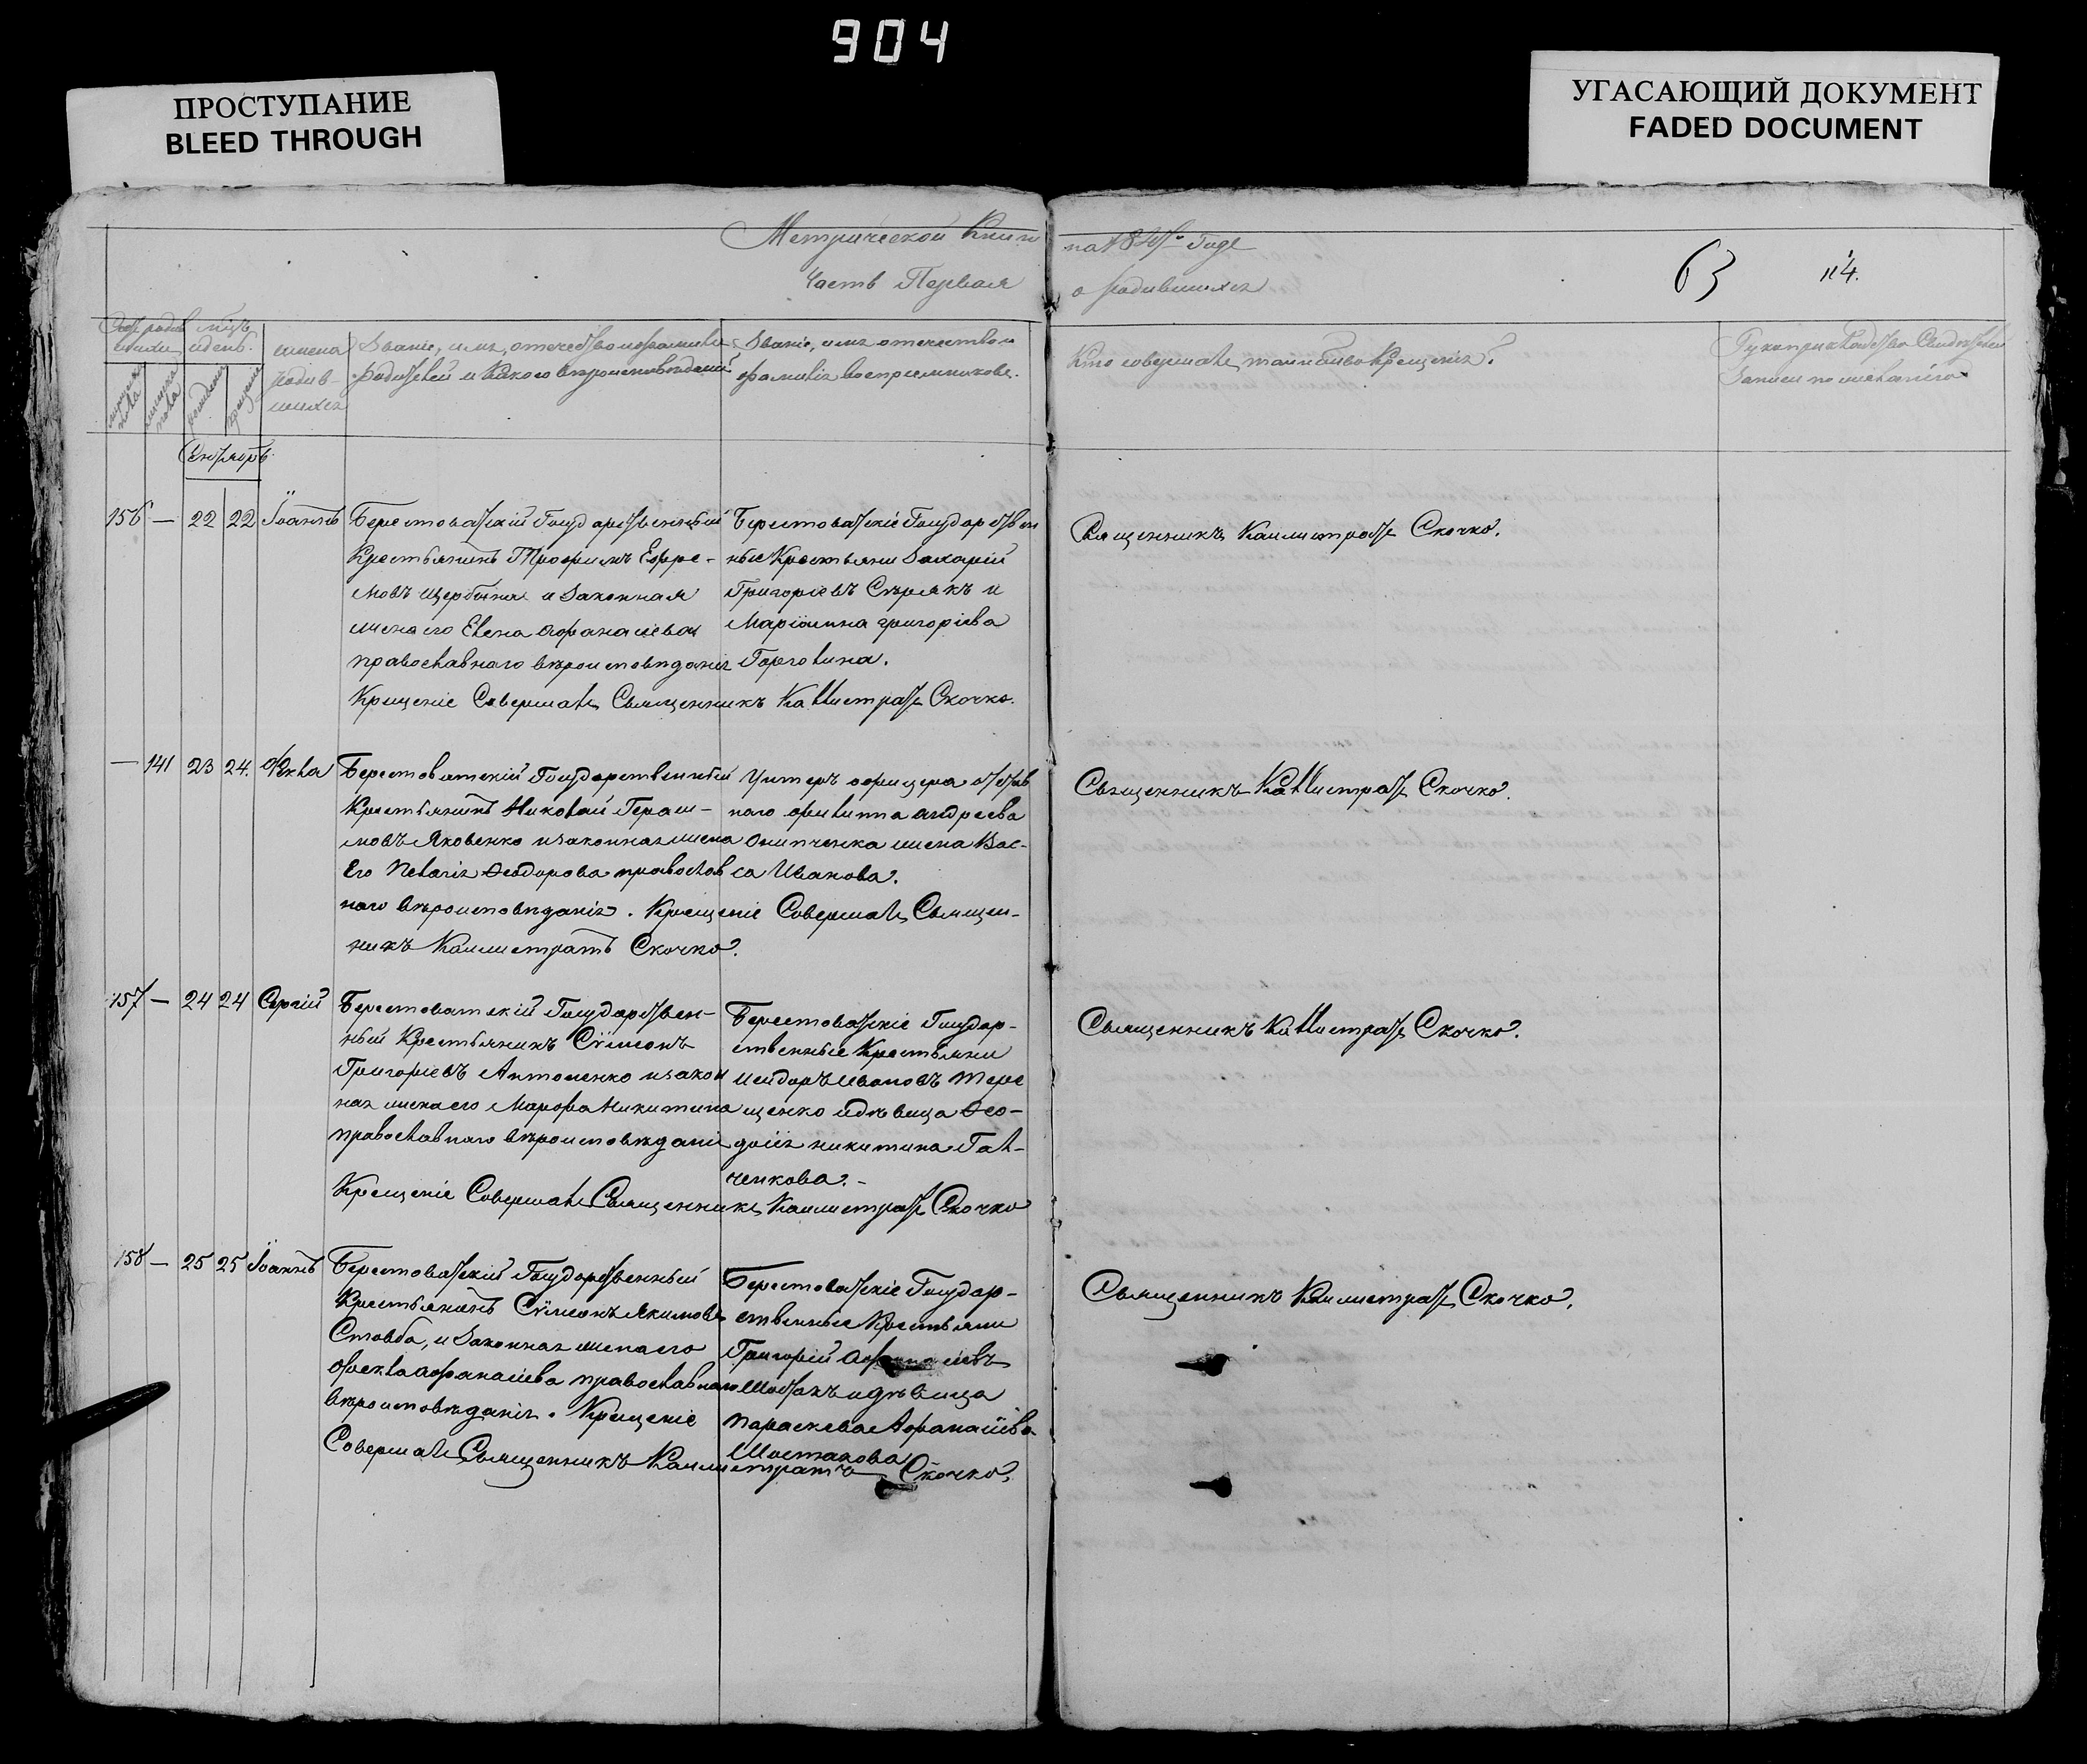 904
ПРОСТУПАНИЕ
BLEED THROUGH
УГАСАЮЩИЙ ДОКУМЕНТ
FADED DOCUMENT
Метрической Книги
Часть Первая
на 18 Годъ
о родившихся
63
114.
мѣсяцъ
и день.
имена
родив-
шихся
Званіе, имя, отечество и фамилія
Родителей и какого вѣроисповѣданія
Званіе, имя отечество и
фамилія воспріемниковъ.
Кто совершалъ таинство Крещенія?
Рукоприкладство Свидѣтелей
Записи по желанію
Сентябрь.
156 — 22 22 Іоаннъ
Берестоватскій Государственный
Крестьянинъ Трофимъ Ефре-
мовъ Щербина и Законная
жена его Елена Афанасіева
православнаго вѣроисповѣданія
Берестоватскіе Государствен
ные Крестьяни Захарій
Григоріевъ Сѣрякъ и
Маріамна григоріева
Крещеніе Совершалъ Священникъ Каллистратъ Скочко.
Священникъ Каллистратъ Скочко.
— 141 23 24. Ѳекла
Берестоватскій Государственный
Крестьянинъ Николай Гераси-
мовъ Яковенко и законная жена
Его Пелагія Ѳеодорова православ
наго вѣроисповѣданія. Крещеніе Совершалъ Священ-
никъ Каллистратъ Скочко.
Унтеръ офицера отстав
наго филиппа андреева
Онипченка жена Вас-
са Иванова.
Священникъ Каллистратъ Скочко.
157 — 24 24 Сергій
Берестоватскій Государствен-
ный Крестьянинъ Сѵмеонъ
Григоріевъ Антоненко и закон
ная жена его Марфа Никитина
православнаго вѣроисповѣдані
Берестоватскіе Государ-
ственные Крестьяни
Исидоръ Ивановъ Тере
щенко и дѣвица Ѳео-
досія никитина Гал-
ченкова. -
Крещеніе Совершалъ Священникъ Каллистратъ Скочко
Священникъ Каллистратъ Скочко.
158 — 25 25 Іоаннъ
Берестоватскій Государственный
Крестьянинъ Сѵмеонъ Якимовъ
Стовба, и Законная жена его
Ѳекла афанасіева православнаго
вѣроисповѣданія. Крещеніе
Совершалъ Священникъ Каллистратъ Скочко.
Берестоватскіе Государ-
ственные Крестьяни
Григорій Афанасіевъ
Шостакъ и дѣвица
параскева Афанасіева
Шостакова
Священникъ Каллистратъ Скочко.